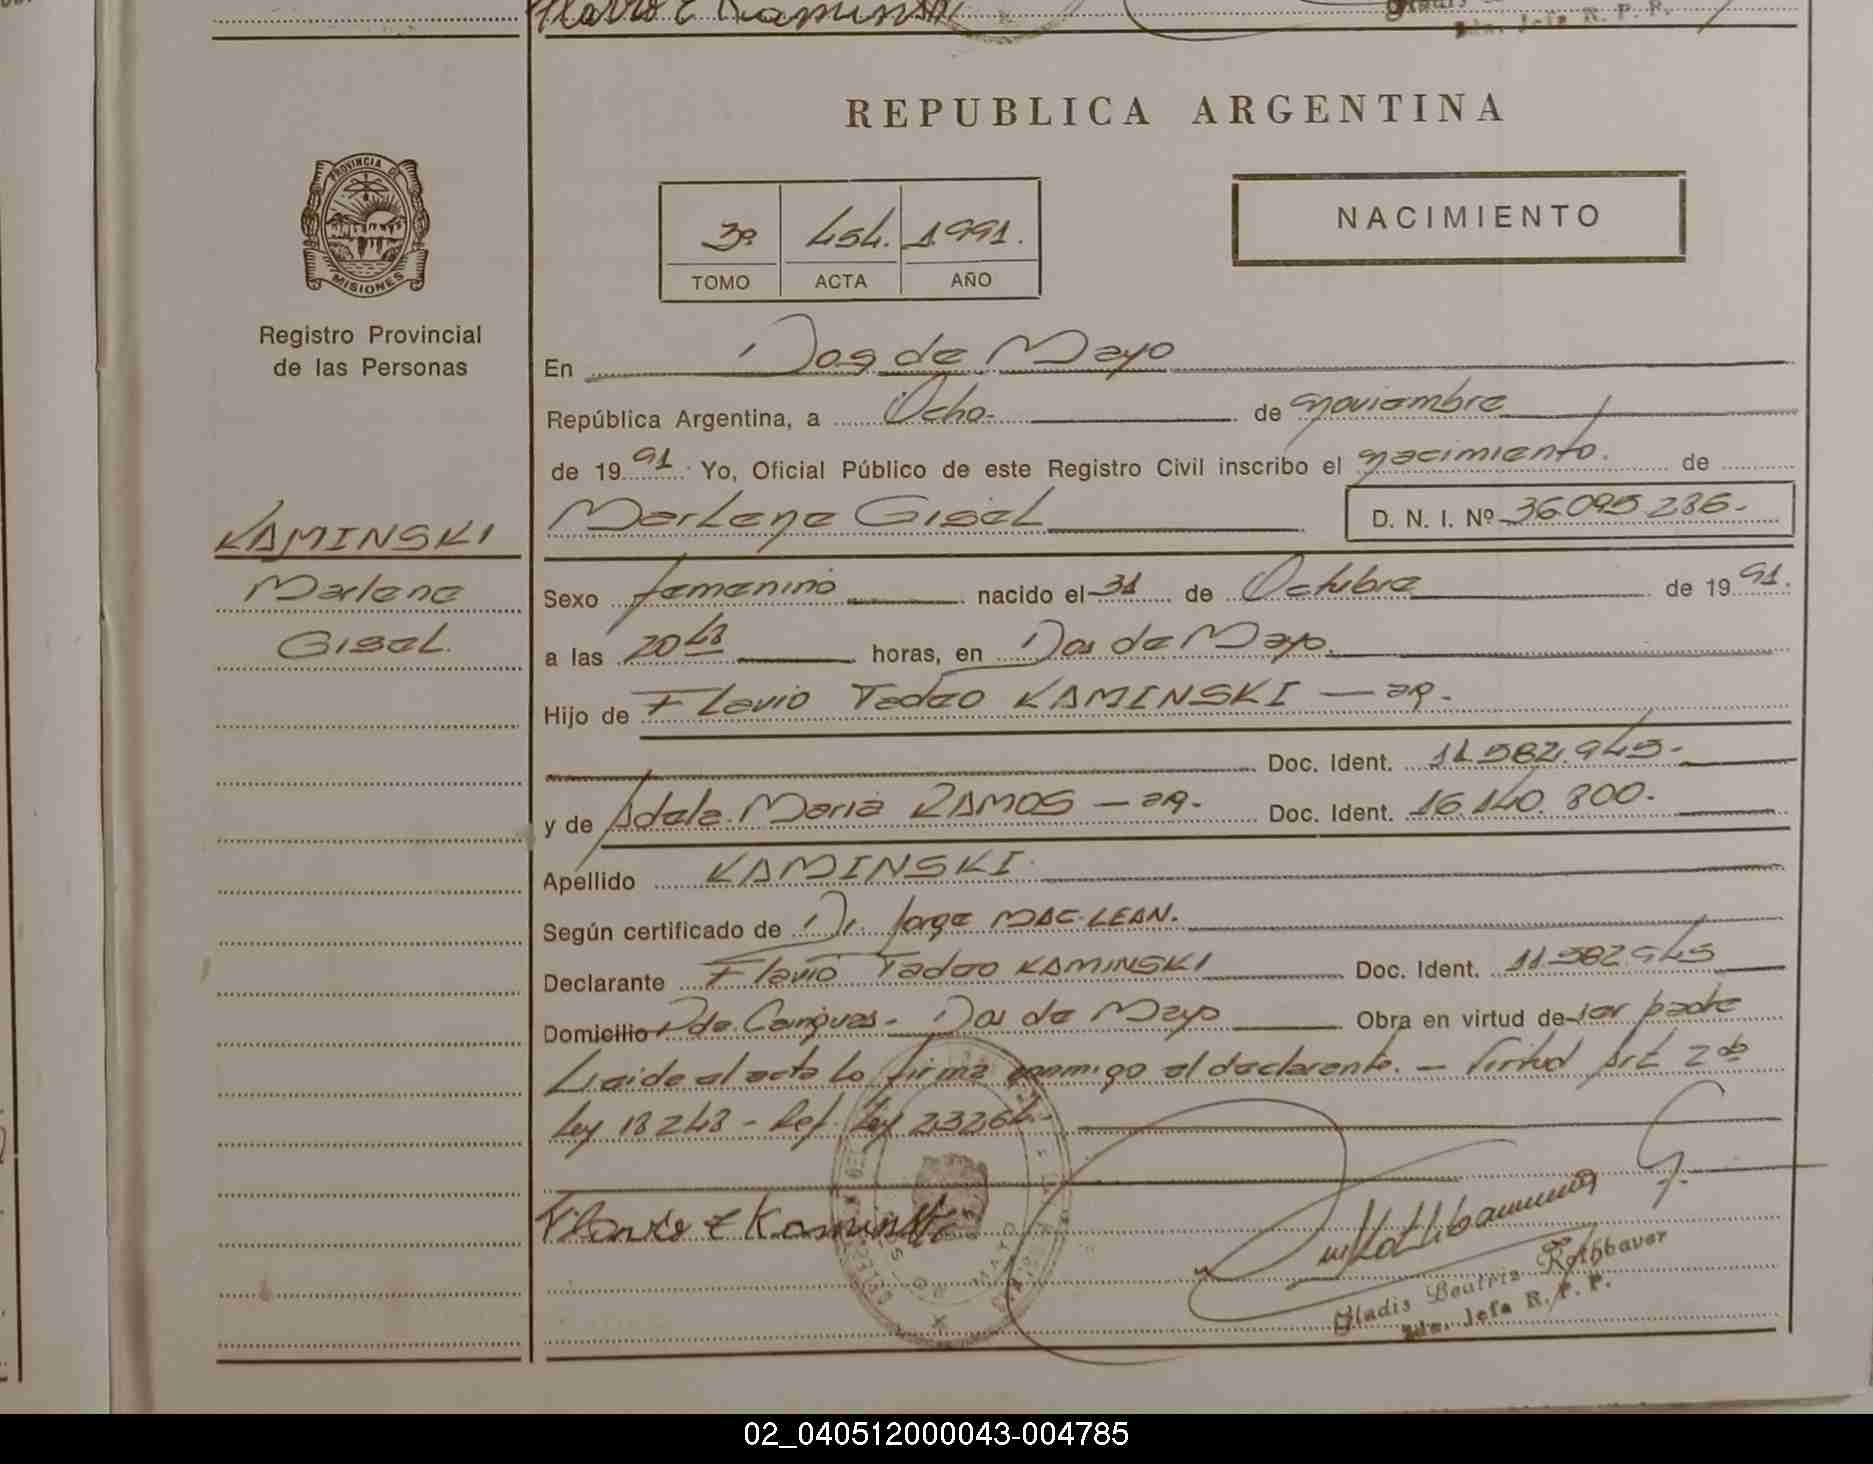 Flavio T Kaminski
REPUBLICA ARGENTINA
PROVINCIA DE MISIONES
3º 454. 1991.
TOMO ACTA AÑO
NACIMIENTO
Registro Provincial
de las Personas
En Dos de Mayo
República Argentina, a Ocho- de noviembre
de 1991 Yo, Oficial Público de este Registro Civil inscribo el nacimiento. de
KAMINSKI
Marlene
Gisel.
Marlene Gisel D. N. I. Nº 36095236-
Sexo femenino nacido el 31 de Octubre de 1991.
a las 20 48 horas, en Dos de Mayo.
Hijo de Flavio Tadeo KAMINSKI — ar.
Doc. Ident. 11.582.945-
y de Adela Maria RAMOS — ar. Doc. Ident. 16.140.800-
Apellido KAMINSKI
Según certificado de Dr. Jorge MAC-LEAN.
Declarante Flavio Tadeo KAMINSKI Doc. Ident. 11582945
Domicilio Pdo. Cainguas- Dos de Mayo Obra en virtud de ser padre
Leida el acta lo firma conmigo el declarante. — Virtud Art 2do
Ley 18248 - Ref. Ley 23264.
Flavio T Kaminski
Gladis Beatriz Rothbauer
Jefa R. P. P.
02_040512000043-004785